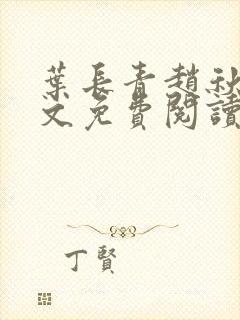 葉長青趙秋
文免費閱讀
丁賢